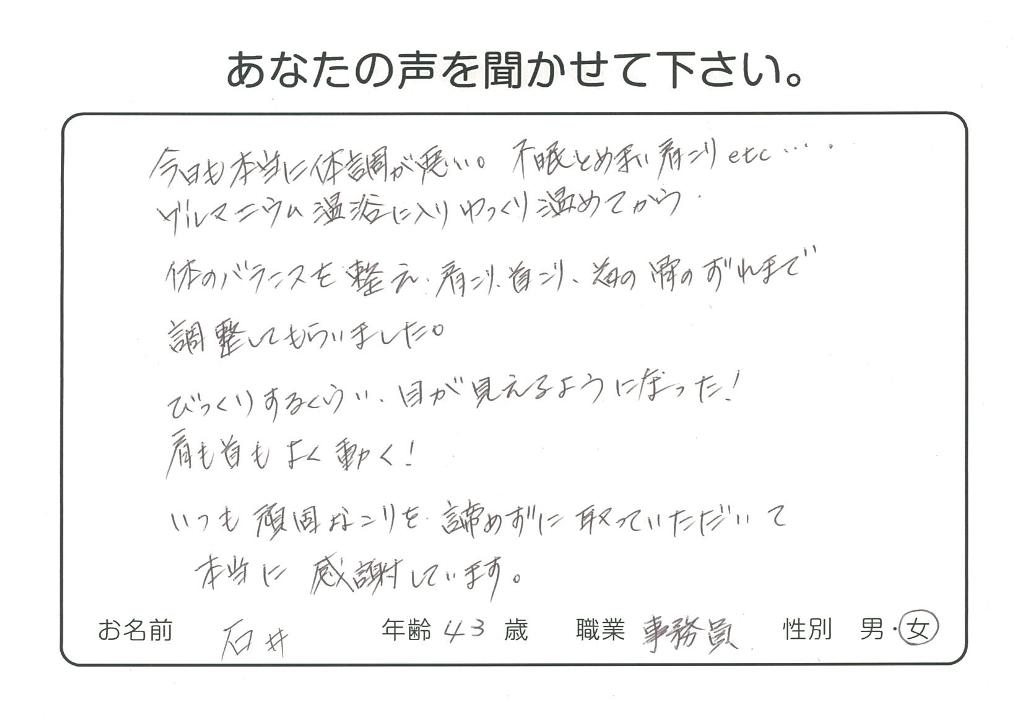 あなたの声を聞かせて下さい。
今日も本当に体調が悪い。不眠とめまい肩こりetc・・・・
ゲルマニウム温浴に入りゆっくり温めてから
体のバランスを整え、肩こり、首こり、の骨のずれまで
調整してもらいました。
びっくりするくらい、目が見えるようになった！
肩も首もよく動く！
いつも頑固なコリを諦めずに取っていただいて
本当に感謝しています。
お名前 石井 年齢 43 歳 職業 事務員 性別 男・女